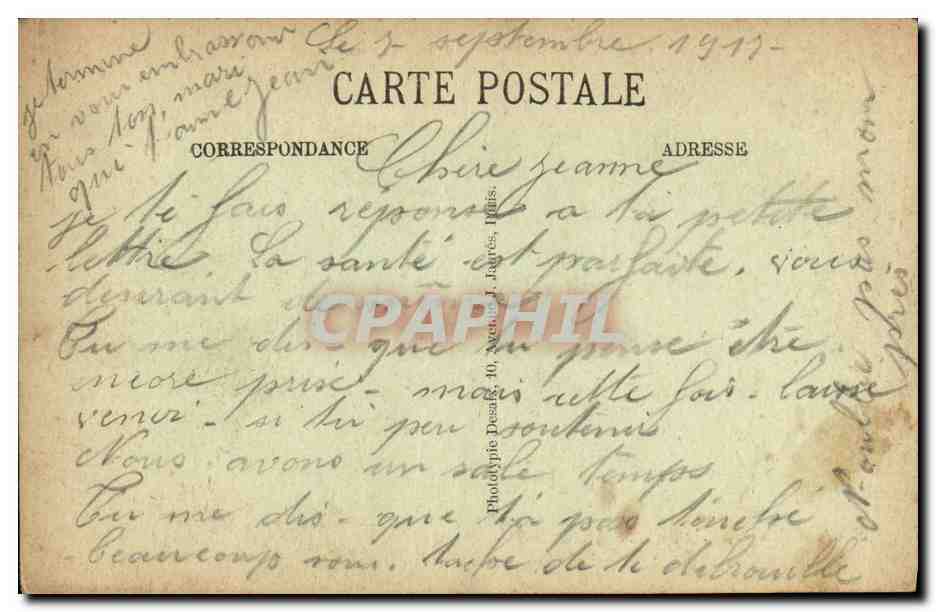 Le 7 septembre 1917-
CARTE POSTALE
CORRESPONDANCE
ADRESSE
Chère jeanne
je te fais réponse a ta petite
lettre. La santé est parfaite. vous
desirant de
Tu me dis que tu pense être
encore prise - mais cette fois. laisse
venir - si tu peu soutenir
Nous avons un sale temps
Tu me dis - que t'a pas touché
beaucoup sous. tache de te debrouille
je termine
en vous embrassant
tous ton mari
qui t'aime jean
N-oublie pas mon
Phototypie Desaix, 10, Avenue J. Jaurès, Paris.
CPAPHIL